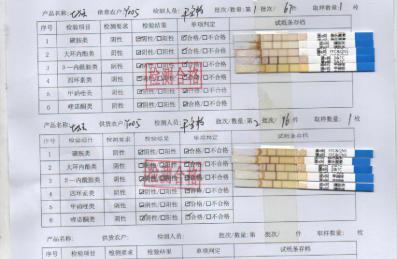 产品名称: 供货农户: 检测人员: 批次/数量:第1 批次/ 件 取样数量:1 枚
序号 检验项目 检测要求 检验结果 单项判定 试纸条存档
1 磺胺类 阴性 ☑阴性/□阳性 ☑合格/□不合格
2 大环内酯类 阴性 ☑阴性/□阳性 ☑合格/□不合格
3 β-内酰胺类 阴性 ☑阴性/□阳性 ☑合格/□不合格
4 四环素类 阴性 ☑阴性/□阳性 ☑合格/□不合格
5 甲硝唑类 阴性 ☑阴性/□阳性 ☑合格/□不合格
6 喹诺酮类 阴性 ☑阴性/□阳性 ☑合格/□不合格
检测合格
产品名称: 供货农户: 检测人员: 批次/数量:第2 批次/ 件 取样数量:1 枚
序号 检验项目 检测要求 检验结果 单项判定 试纸条存档
1 磺胺类 阴性 ☑阴性/□阳性 ☑合格/□不合格
2 大环内酯类 阴性 ☑阴性/□阳性 ☑合格/□不合格
3 β-内酰胺类 阴性 ☑阴性/□阳性 ☑合格/□不合格
4 四环素类 阴性 ☑阴性/□阳性 ☑合格/□不合格
5 甲硝唑类 阴性 ☑阴性/□阳性 ☑合格/□不合格
6 喹诺酮类 阴性 ☑阴性/□阳性 ☑合格/□不合格
检测合格
产品名称: 供货农户: 检测人员: 批次/数量:第 批次/ 件 取样数量: 枚
序号 检验项目 检测要求 检验结果 单项判定 试纸条存档